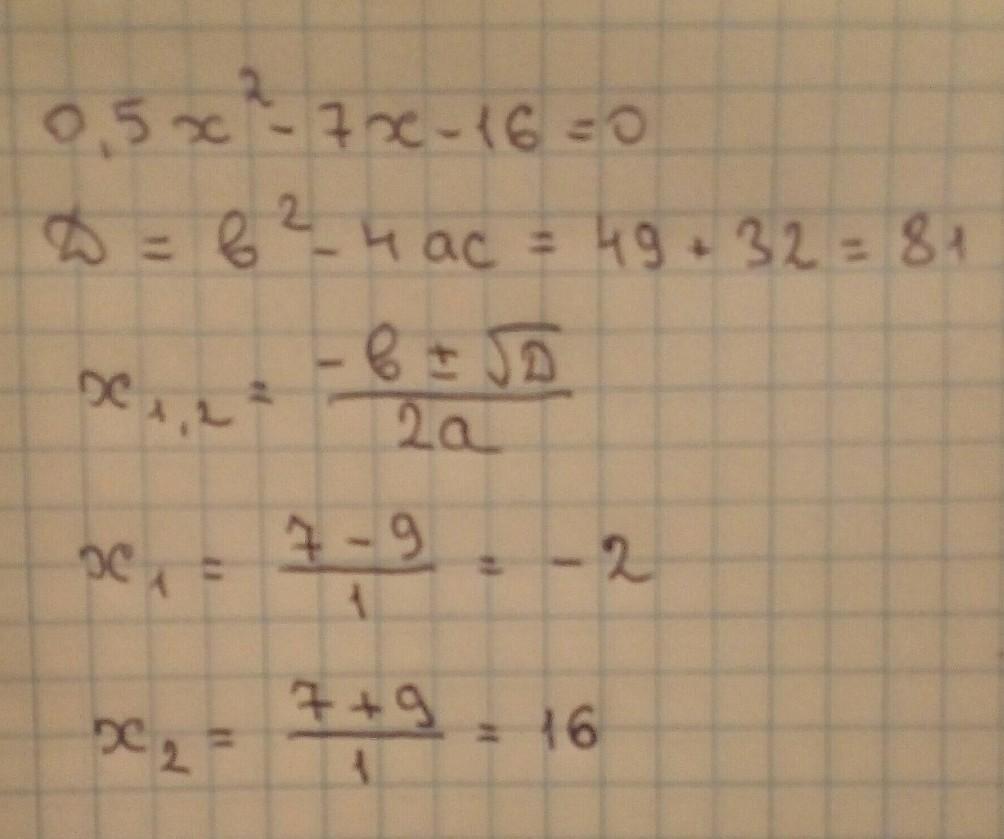 0,5x² - 7x - 16 = 0
D = в² - 4ac = 49 + 32 = 81
x₁,₂ = (-в ± √D) / 2a
x₁ = (7 - 9) / 1 = -2
x₂ = (7 + 9) / 1 = 16